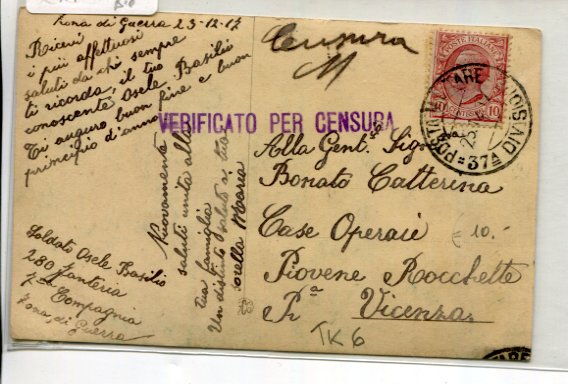 Zona di Guerra 23-12-17
Ricevi
i più affettuosi
saluti da chi sempre
ti ricorda, il tuo
conoscente Osele Basilio
Ti auguro buon fine e buon
principio d'anno
Nuovamente
saluti unita alla
tua famiglia
Un distinto saluto a tua
sorella Maria
Soldato Osele Basilio
280 Fanteria
7ª Compagnia
Zona di Guerra
Censura
M
VERIFICATO PER CENSURA
POSTE ITALIANE
10 CENTESIMI 10
POSTA MILITARE
DIVISIONE
37ª
23
Alla Gent. Sig.
Bonato Catterina
Case Operaie
Piovene Rocchette
Pª Vicenza
€ 10.-
TK 6